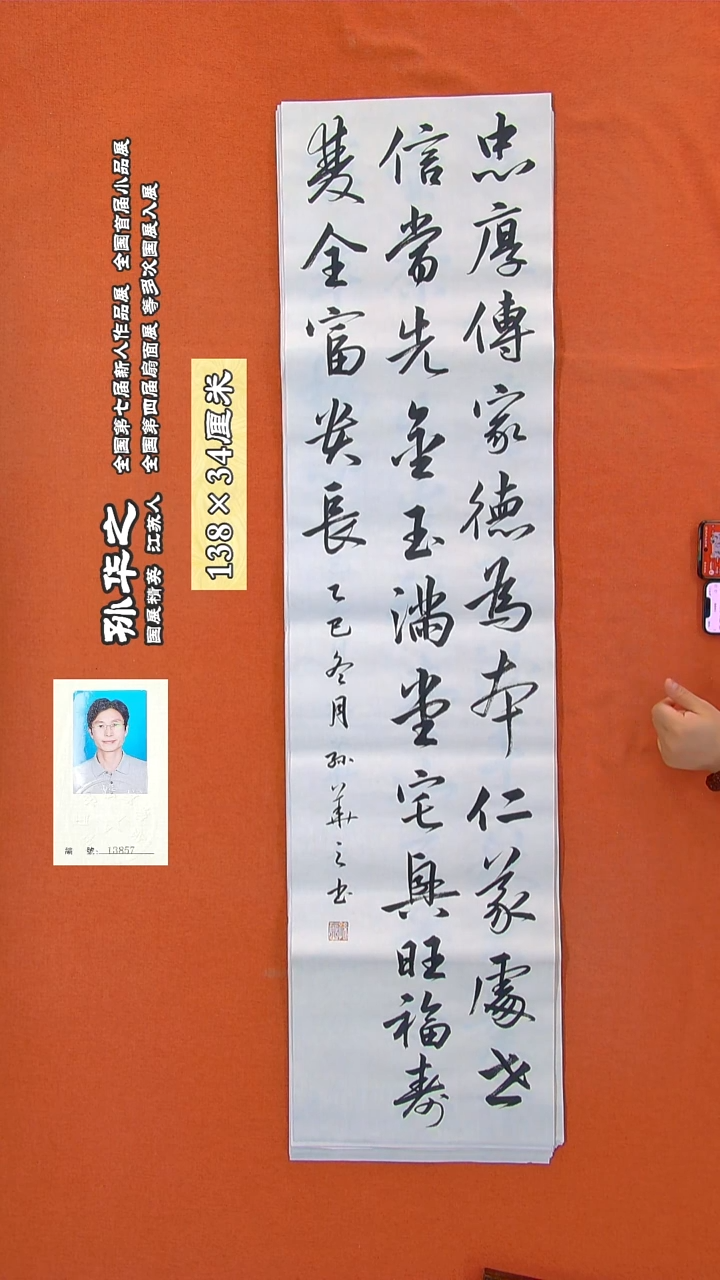 忠厚傳家德為本仁義處世
信當先金玉滿堂宅興旺福壽
雙全富貴長
乙巳冬月孫華之书
138×34厘米
孙华之
国展精英 江苏人
全国第七届新人作品展 全国首届小品展
全国第四届扇面展 等多次国展入展
編 號: 13857